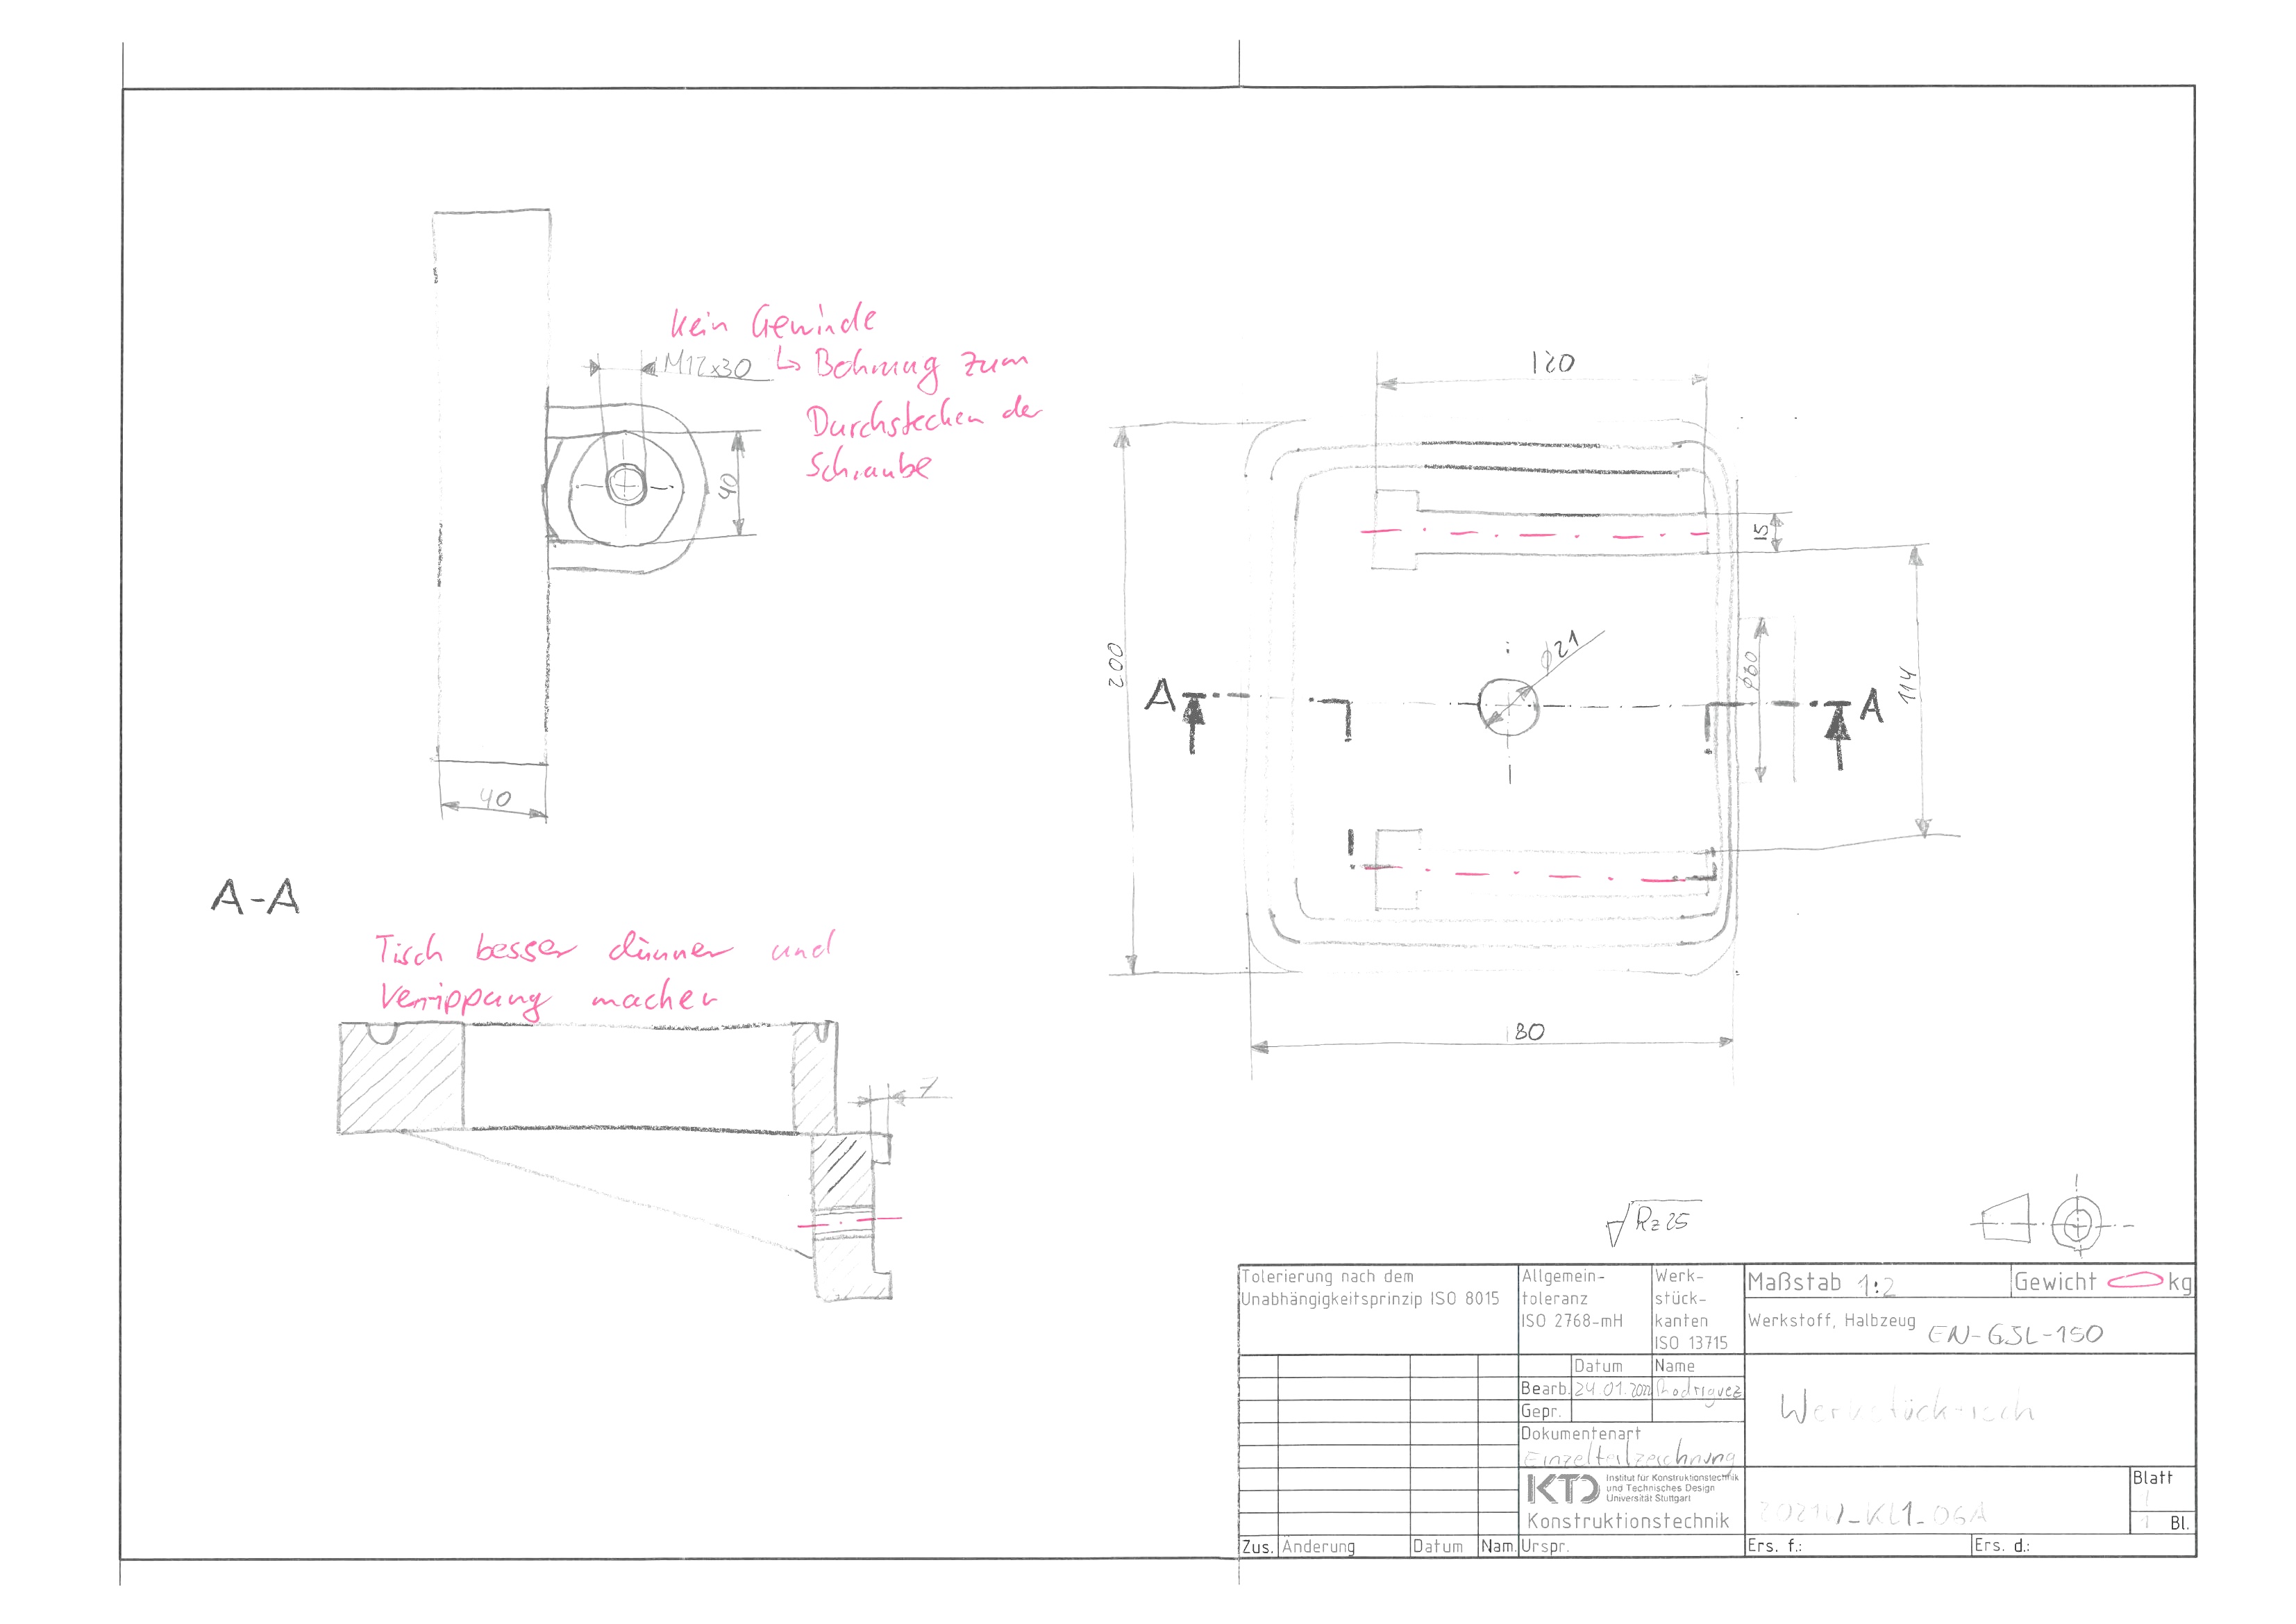 kein Gewinde
M12x30 ↳ Bohrung zum
Durchstecken der
Schraube
40
40
120
15
200
⌀21
A
A
114
180
A-A
Tisch besser dünner und
Verrippung machen
7
Rz 25
Tolerierung nach dem
Unabhängigkeitsprinzip ISO 8015
Allgemein-
toleranz
ISO 2768-mH
Werk-
stück-
kanten
ISO 13715
Maßstab 1:2
Gewicht kg
Werkstoff, Halbzeug EN-GJL-150
Datum Name
Bearb. 24.01.2022 Rodriguez
Gepr.
Dokumentenart
Einzelteilzeichnung
Werkstücktisch
KTD Institut für Konstruktionstechnik
und Technisches Design
Universität Stuttgart
Konstruktionstechnik
2021W_KL1_06A
Blatt
1
1 Bl.
Zus. Änderung Datum Nam. Urspr. Ers. f.: Ers. d.: